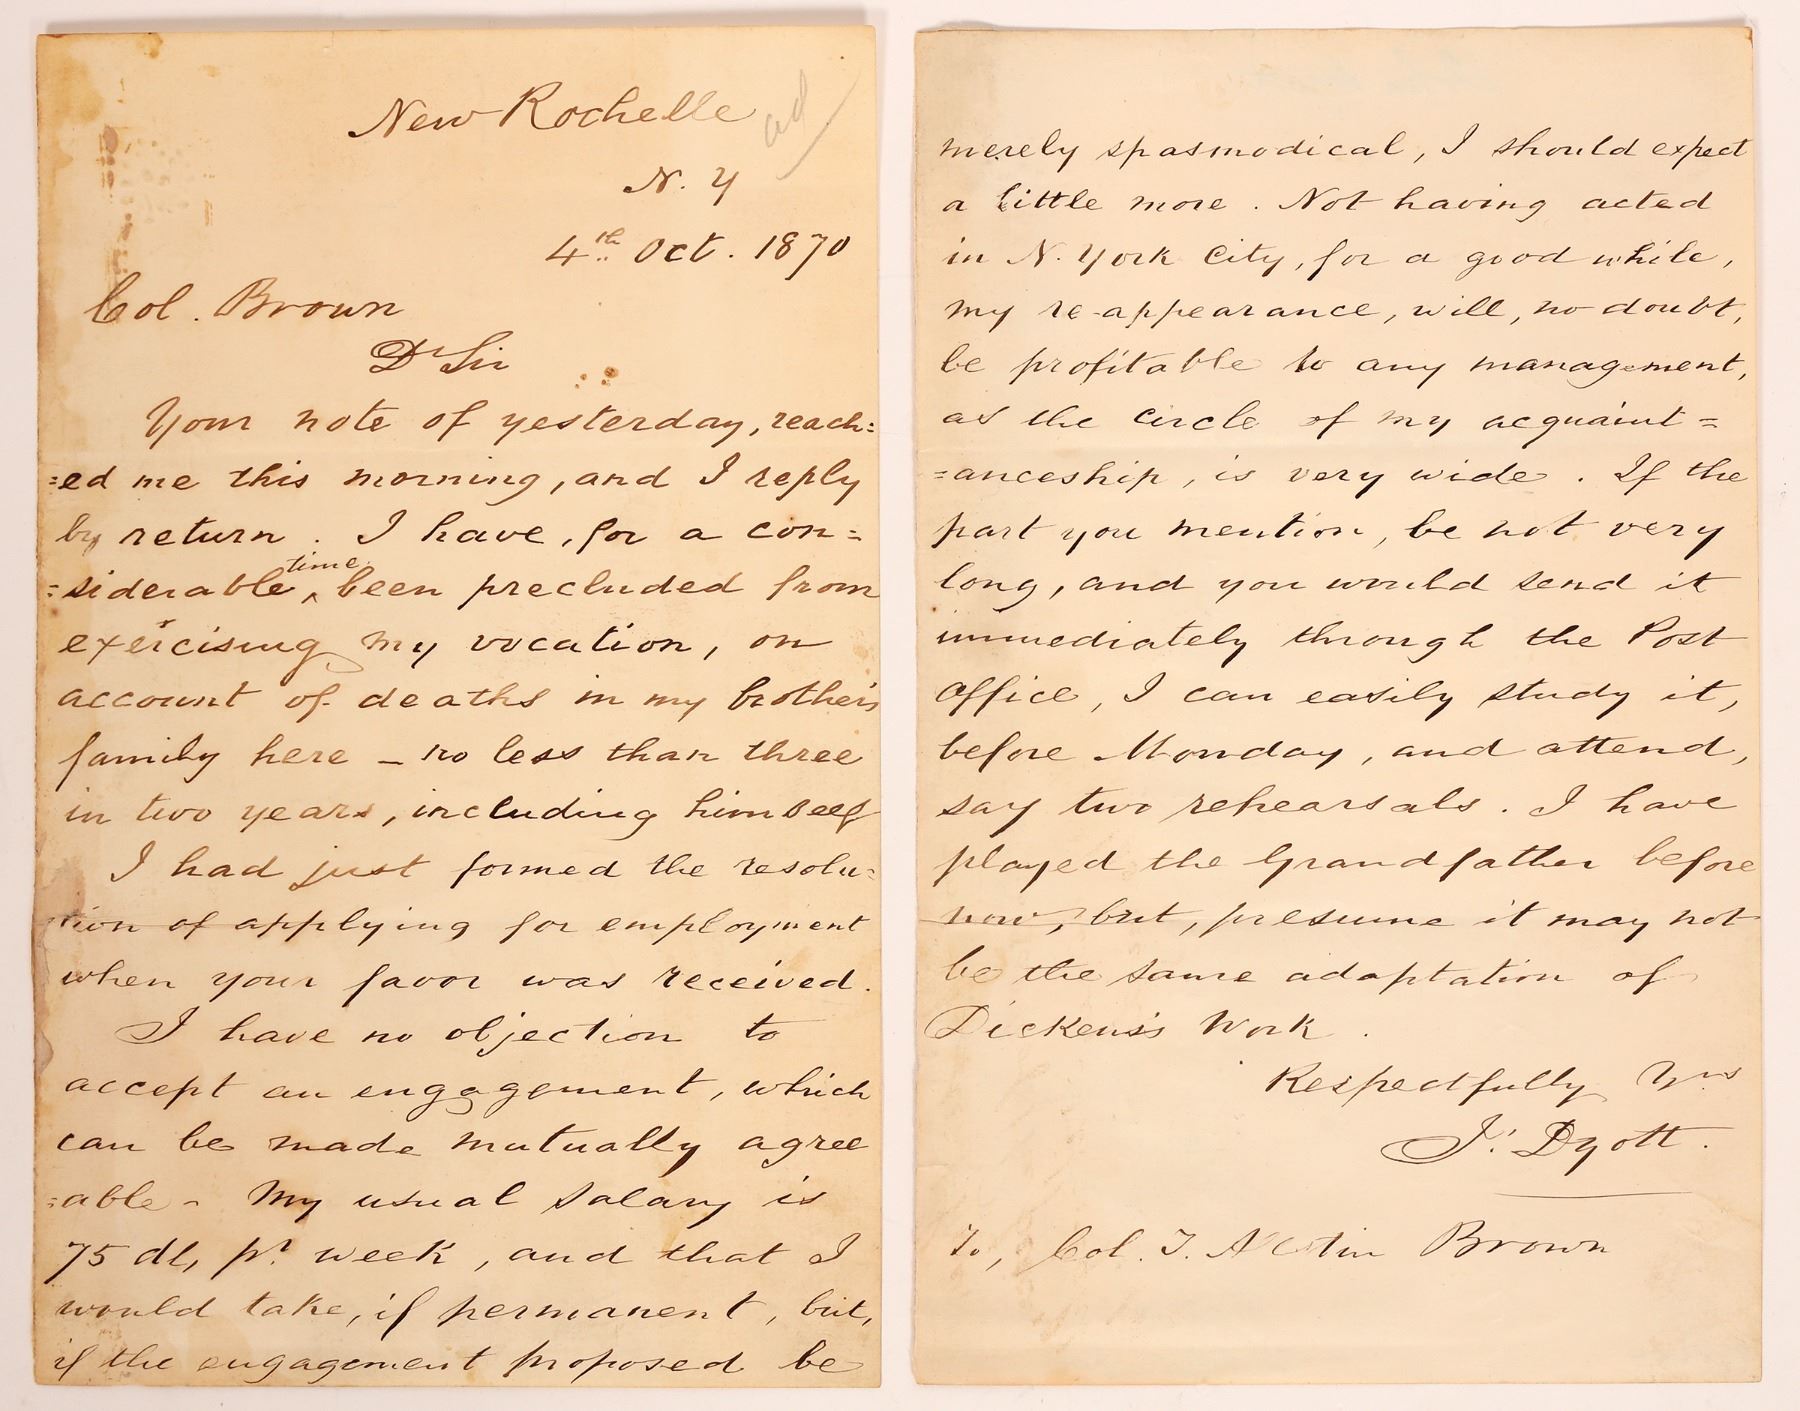 New Rochelle
ad
N. Y
4th Oct. 1870
Col. Brown
Dr Sir
Your note of yesterday, reach=
=ed me this morning, and I reply
by return. I have, for a con=
=siderable time been precluded from
exercising my vocation, on
account of deaths in my brother's
family here – no less than three
in two years, including himself
I had just formed the resolu=
tion of applying for employment
when your favor was received.
I have no objection to
accept an engagement, which
can be made mutually agree
=able – My usual salary is
75 dl, pr. week, and that I
would take, if permanent, but,
if the engagement proposed be
merely spasmodical, I should expect
a little more. Not having acted
in N. York City, for a good while,
my re-appearance, will, no doubt,
be profitable to any management,
as the circle of my acquaint=
=anceship, is very wide. If the
part you mention, be not very
long, and you would send it
immediately through the Post
Office, I can easily study it,
before Monday, and attend,
say two rehearsals. I have
played the Grandfather before
now, but, presume it may not
be the same adaptation of
Dickens's Work.
Respectfully Yrs
J. Dyott.
To, Col. T. Allston Brown